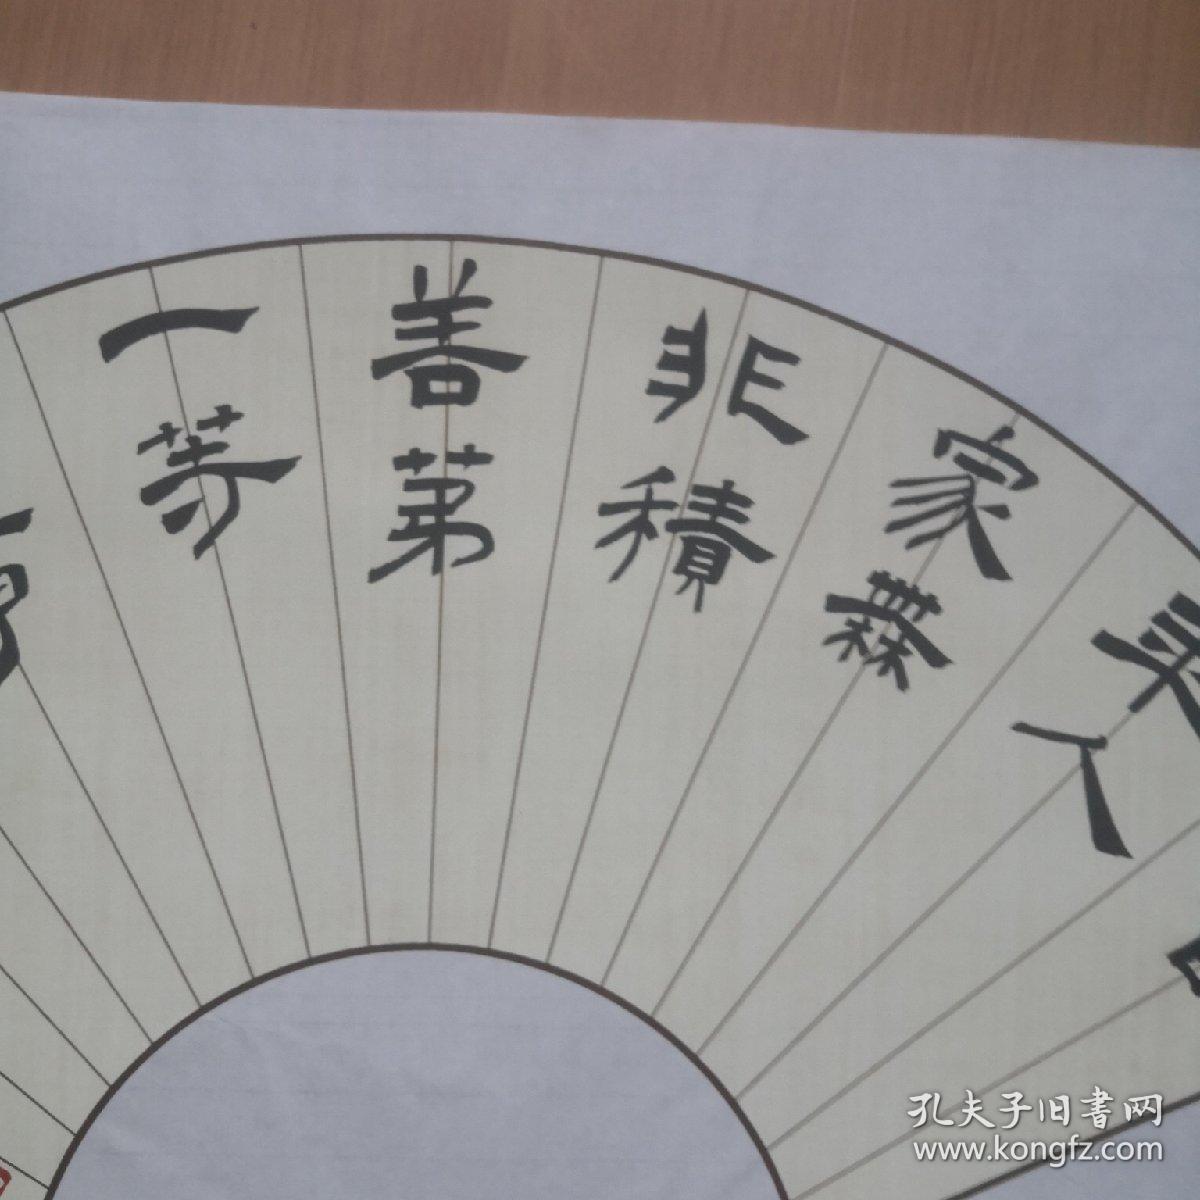 来人
家無
非積
善第
一等
孔夫子旧書网
www.kongfz.com